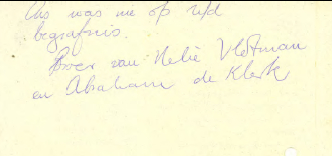 was me op tijd
begrafnis.
Broer van Nelie Vlotman
en Abraham de Klerk